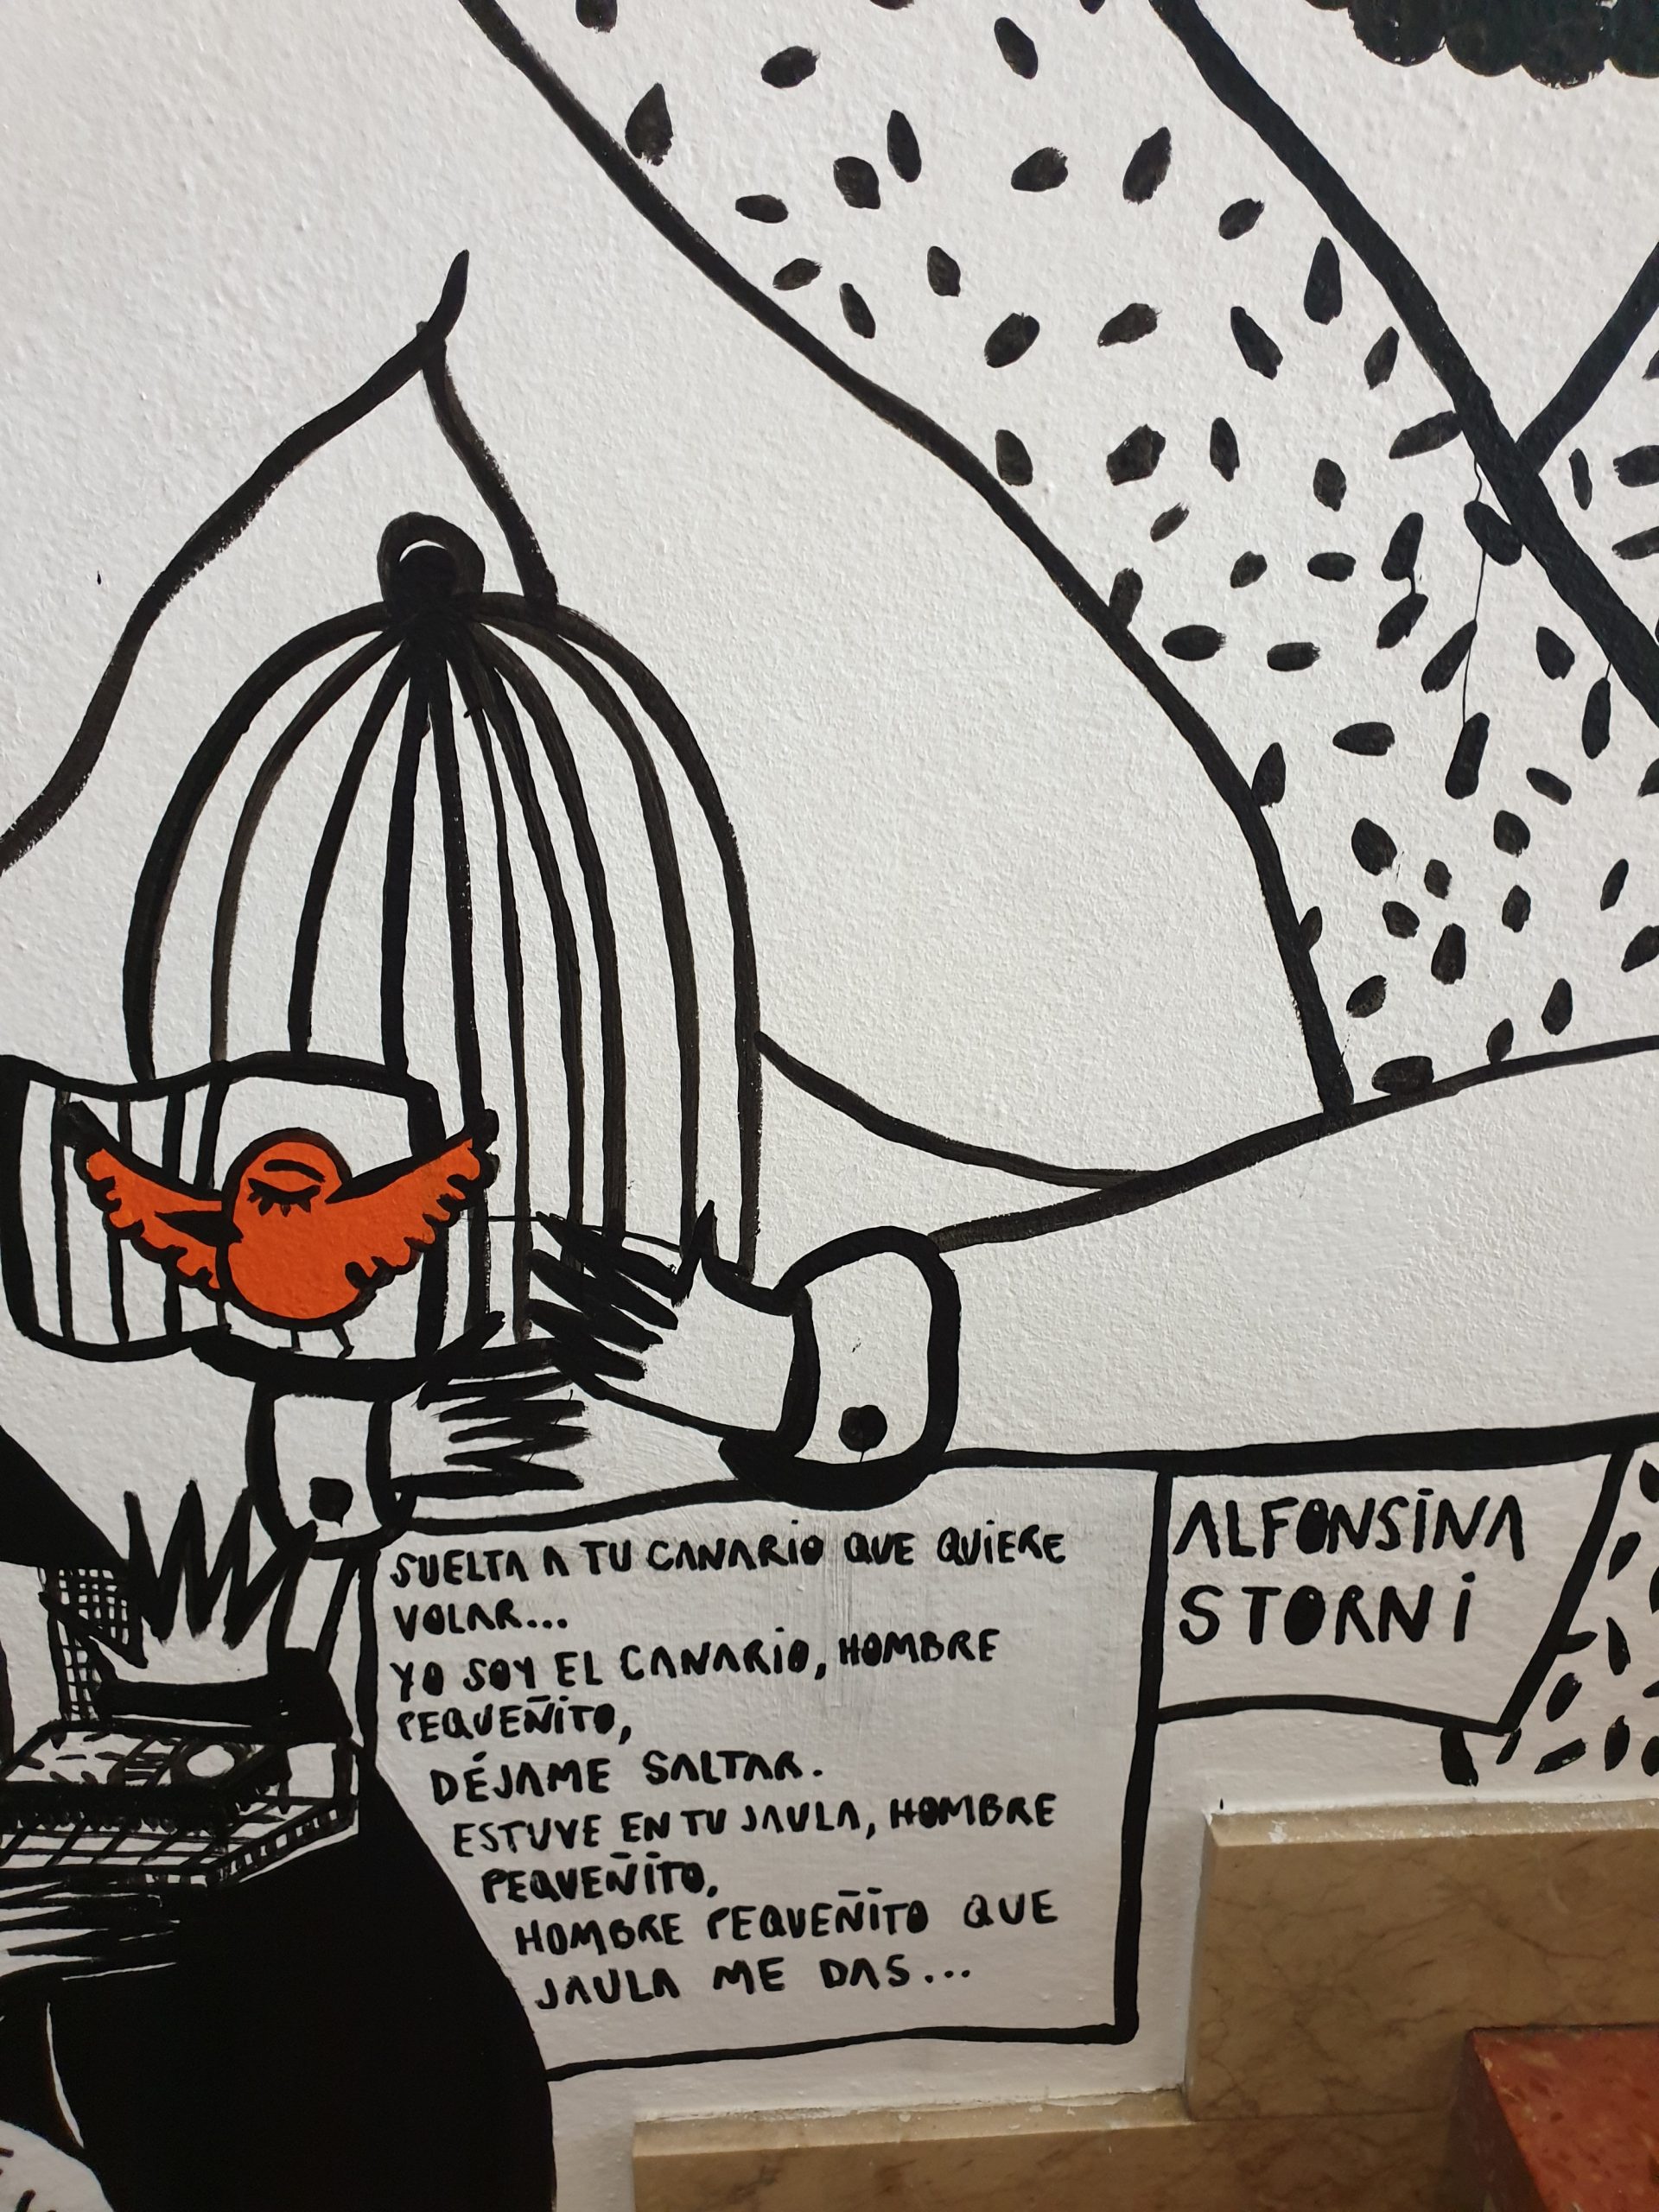 SUELTA A TU CANARIO QUE QUIERE
VOLAR...
YO SOY EL CANARIO, HOMBRE
PEQUEÑITO,
DÉJAME SALTAR.
ESTUVE EN TU JAULA, HOMBRE
PEQUEÑITO,
HOMBRE PEQUEÑITO QUE
JAULA ME DAS...
ALFONSINA
STORNI